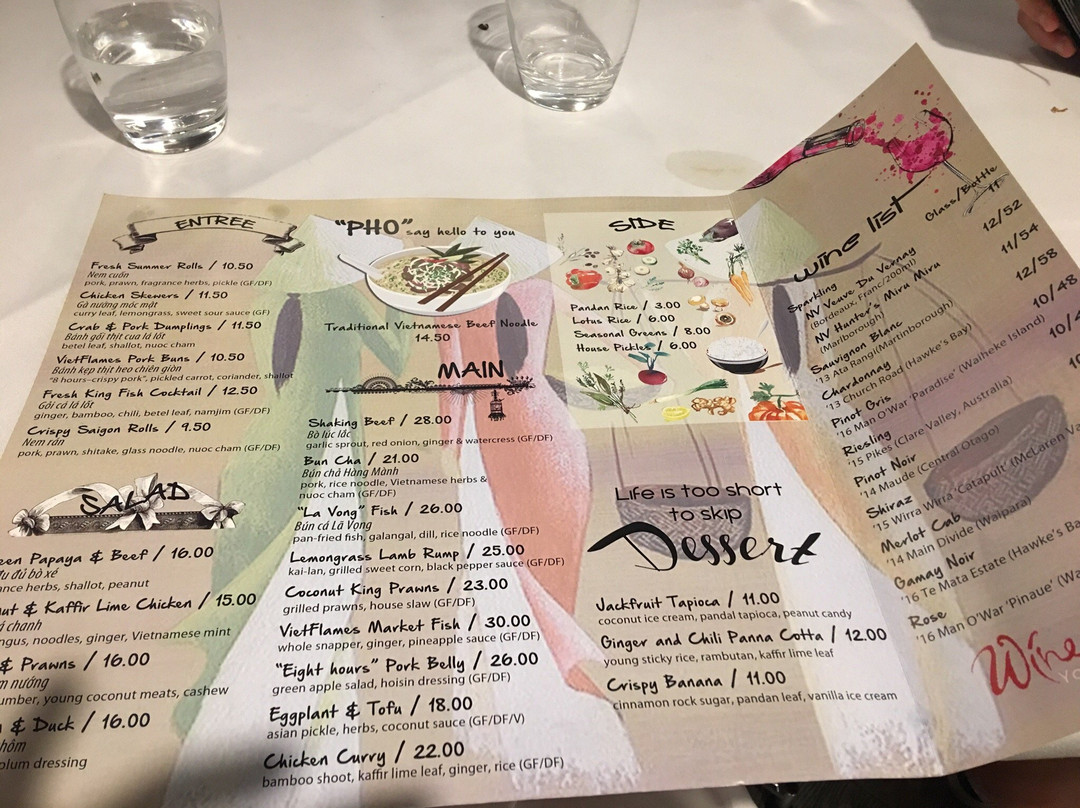 ENTREE
Fresh Summer Rolls / 10.50
Nem cuốn
pork, prawn, fragrance herbs, pickle (GF/DF)
Chicken Skewers / 11.50
Gà nướng móc mật
curry leaf, lemongrass, sweet sour sauce (GF)
Crab & Pork Dumplings / 11.50
Bánh gối thịt cua lá lốt
betel leaf, shallot, nuoc cham
VietFlames Pork Buns / 10.50
Bánh kẹp thịt heo chiên giòn
"8 hours-crispy pork", pickled carrot, coriander, shallot
Fresh King Fish Cocktail / 12.50
Gỏi cá lá lốt
ginger, bamboo, chili, betel leaf, namjim (GF/DF)
Crispy Saigon Rolls / 9.50
Nem rán
pork, prawn, shitake, glass noodle, nuoc cham (GF/DF)
SALAD
Papaya & Beef / 16.00
đu đủ bò xé
herbs, shallot, peanut
& Kaffir Lime Chicken / 15.00
chanh
noodles, ginger, Vietnamese mint
& Prawns / 16.00
nướng
young coconut meats, cashew
& Duck / 16.00
plum dressing
"PHO" say hello to you
Traditional Vietnamese Beef Noodle
14.50
MAIN
Shaking Beef / 28.00
Bò lúc lắc
garlic sprout, red onion, ginger & watercress (GF/DF)
Bun Cha / 21.00
Bún chả Hàng Mành
pork, rice noodle, Vietnamese herbs &
nuoc cham (GF/DF)
"La Vong" Fish / 26.00
Bún cá Lã Vọng
pan-fried fish, galangal, dill, rice noodle (GF/DF)
Lemongrass Lamb Rump / 25.00
kai-lan, grilled sweet corn, black pepper sauce (GF/DF)
Coconut King Prawns / 23.00
grilled prawns, house slaw (GF/DF)
VietFlames Market Fish / 30.00
whole snapper, ginger, pineapple sauce (GF/DF)
"Eight hours" Pork Belly / 26.00
green apple salad, hoisin dressing (GF/DF)
Eggplant & Tofu / 18.00
asian pickle, herbs, coconut sauce (GF/DF/V)
Chicken Curry / 22.00
bamboo shoot, kaffir lime leaf, ginger, rice (GF/DF)
SIDE
Pandan Rice / 3.00
Lotus Rice / 6.00
Seasonal Greens / 8.00
House Pickles / 6.00
Life is too short
to skip
Dessert
Jackfruit Tapioca / 11.00
coconut ice cream, pandal tapioca, peanut candy
Ginger and Chili Panna Cotta / 12.00
young sticky rice, rambutan, kaffir lime leaf
Crispy Banana / 11.00
cinnamon rock sugar, pandan leaf, vanilla ice cream
wine list
Glass/Bottle
Sparkling
NV Veuve Du Vernay 11
(Bordeaux, Franc/200ml)
NV Hunter's Miru Miru 12/52
(Marlborough)
Sauvignon Blanc 11/54
'13 Ata Rangi(Martinborough)
Chardonnay 12/58
'13 Church Road (Hawke's Bay)
Pinot Gris 10/48
'16 Man O'War 'Paradise' (Waiheke Island)
Riesling
'15 Pikes (Clare Valley, Australia)
Pinot Noir
'14 Maude (Central Otago)
Shiraz
'15 Wirra Wirra 'Catapult' (McLaren
Merlot Cab
'14 Main Divide (Waipara)
Gamay Noir
'16 Te Mata Estate (Hawke's
Rose
'16 Man O'War 'Pinaue'
Wine